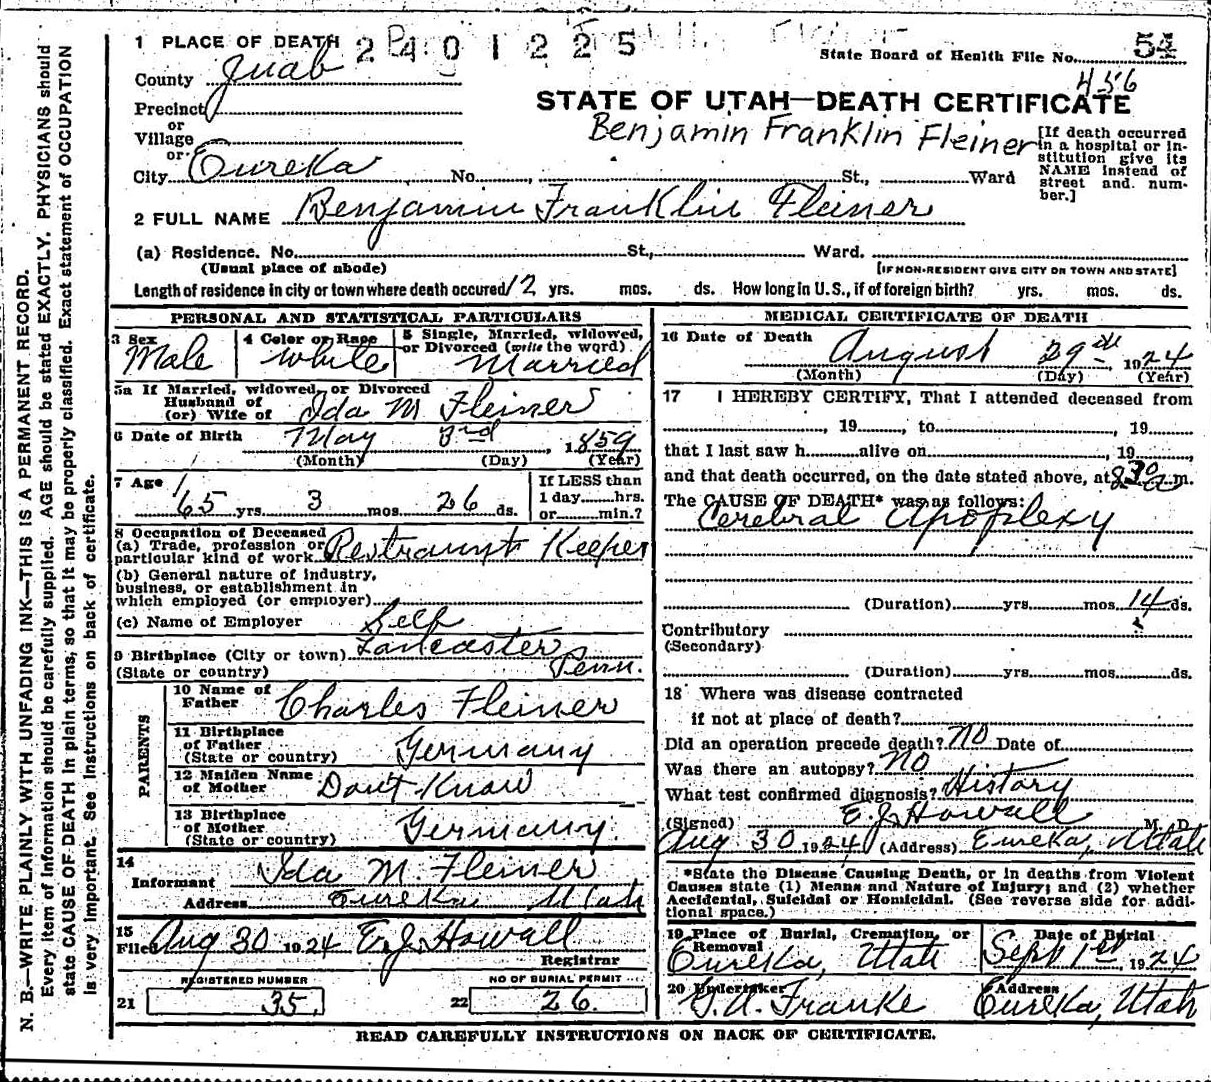 1 PLACE OF DEATH 2401225
State Board of Health File No. 54
County Juab
456
Precinct
STATE OF UTAH—DEATH CERTIFICATE
or
Village
Benjamin Franklin Fleiner
or
City Eureka No. St., Ward
[If death occurred
in a hospital or in-
stitution give its
NAME instead of
street and num-
ber.]
2 FULL NAME Benjamin Franklin Fleiner
(a) Residence. No. St., Ward.
(Usual place of abode)
[IF NON-RESIDENT GIVE CITY OR TOWN AND STATE]
Length of residence in city or town where death occured 12 yrs. mos. ds. How long in U.S., if of foreign birth? yrs. mos. ds.
PERSONAL AND STATISTICAL PARTICULARS
3 Sex
Male
4 Color or Race
White
5 Single, Married, widowed,
or Divorced (write the word)
Married
5a If Married, widowed, or Divorced
Husband of
(or) Wife of Ida M Fleiner
6 Date of Birth May 3rd, 1859
(Month) (Day) (Year)
7 Age
65 yrs. 3 mos. 26 ds.
If LESS than
1 day hrs.
or min.?
8 Occupation of Deceased
(a) Trade, profession or
particular kind of work Restraunt Keeper
(b) General nature of industry,
business, or establishment in
which employed (or employer)
(c) Name of Employer Self
9 Birthplace (City or town) Lancaster
(State or country) Penn.
PARENTS
10 Name of
Father Charles Fleiner
11 Birthplace
of Father
(State or country) Germany
12 Maiden Name
of Mother Don't Know
13 Birthplace
of Mother
(State or country) Germany
14
Informant Ida M. Fleiner
Address Eureka Utah
15
Filed Aug 30 1924 E. J. Howall
Registrar
REGISTERED NUMBER
21 35.
NO OF BURIAL PERMIT
22 26.
MEDICAL CERTIFICATE OF DEATH
16 Date of Death
August 29th 1924
(Month) (Day) (Year)
17 I HEREBY CERTIFY, That I attended deceased from
, 19 , to , 19
that I last saw h alive on , 19 ,
and that death occurred, on the date stated above, at 830 a m.
The CAUSE OF DEATH* was as follows:
Cerebral Apoplexy
(Duration) yrs. mos. 14 ds.
Contributory
(Secondary)
(Duration) yrs. mos. ds.
18 Where was disease contracted
if not at place of death?
Did an operation precede death? no Date of
Was there an autopsy? no
What test confirmed diagnosis? History
(Signed) E. J. Howall M. D.
Aug 30 1924 (Address) Eureka, Utah
*State the Disease Causing Death, or in deaths from Violent
Causes state (1) Means and Nature of Injury; and (2) whether
Accidental, Suicidal or Homicidal. (See reverse side for addi-
tional space.)
19 Place of Burial, Cremation, or
Removal
Eureka, Utah
Date of Burial
Sept 1st, 1924
20 Undertaker
G. A. Franke
Address
Eureka, Utah
READ CAREFULLY INSTRUCTIONS ON BACK OF CERTIFICATE.
N. B.—WRITE PLAINLY WITH UNFADING INK—THIS IS A PERMANENT RECORD.
Every item of information should be carefully supplied. AGE should be stated EXACTLY. PHYSICIANS should
state CAUSE OF DEATH in plain terms, so that it may be properly classified. Exact statement of OCCUPATION
is very important. See Instructions on back of certificate.